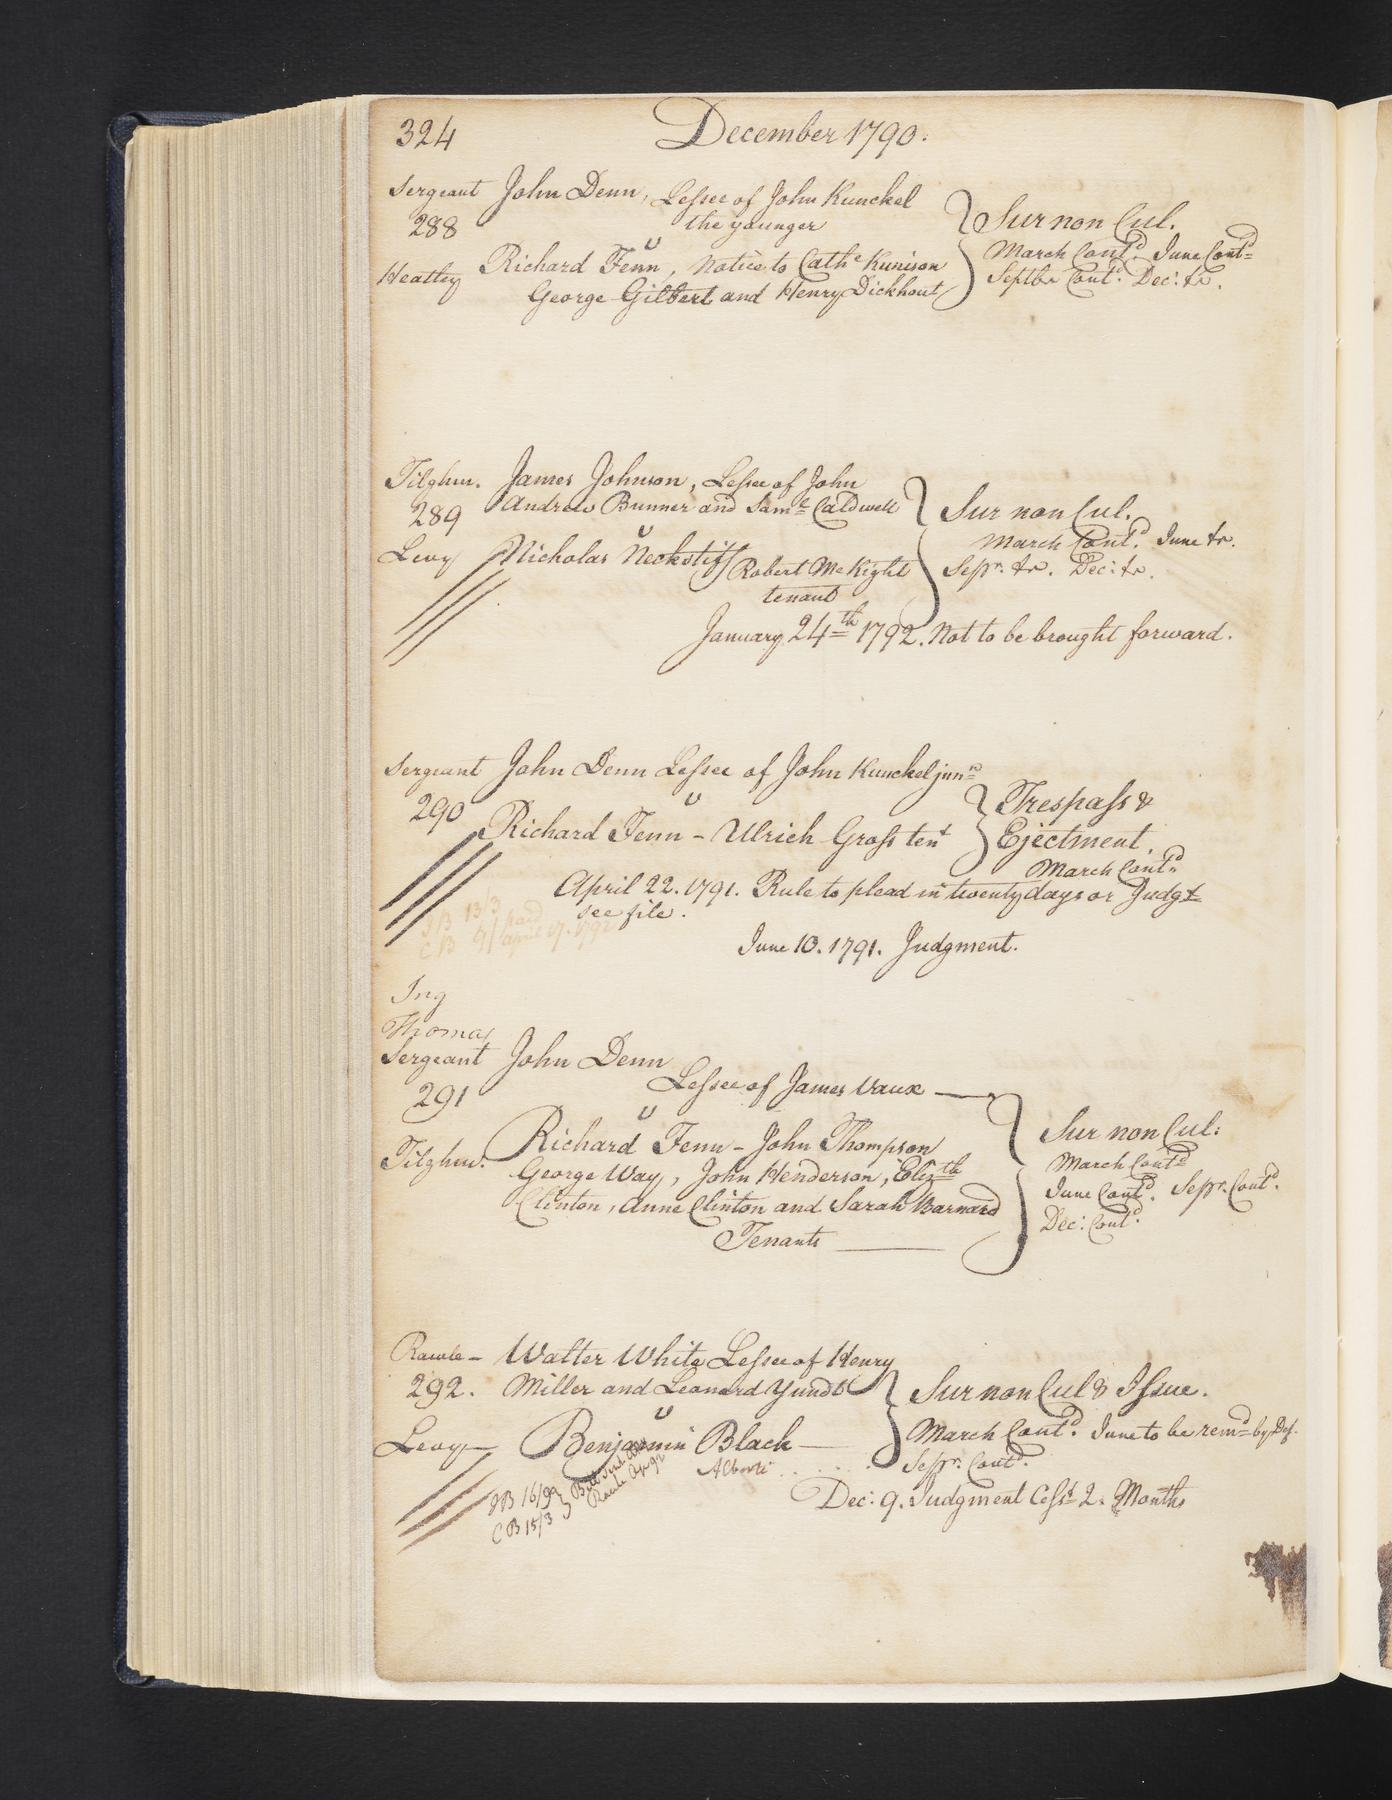 324 December 1790.
Sergeant John Denn, Lessee of John Kunckel
288 the younger } Sur non Cul.
v
Heatley Richard Fenn, Notice to Cathe Kunison March Contd. June Contd
George Gilbert and Henry Dickhout Septbr Contd. Dec: tr.
Tilghm. James Johnson, Lessee of John
289 Andrew Bunner and Saml Caldwell } Sur non Cul.
v
Levy Nicholas Neckstiff Robert McKight March Contd. June tr.
tenant Sepr. tr. Dec: tr.
January 24th 1792. Not to be brought forward.
Sergeant John Denn Lessee of John Kunckel junr
290 v } Trespass &
Richard Fenn - Ulrich Gross tent Ejectment.
March Contd
April 22. 1791. Rule to plead in twenty days or Judgt
see file.
JB 13/3 paid
CB 9/ april 17. 1792
June 10. 1791. Judgment.
Ing
Thomas
Sergeant John Denn
291 Lessee of James Vaux
v } Sur non Cul:
Tilghm. Richard Fenn - John Thompson March Contd
George Way, John Henderson, Elizth June Contd. Sepr. Contd.
Clinton, Anne Clinton and Sarah Barnard Dec: Contd.
Tenants
Rawle - Walter White Lessee of Henry
292. Miller and Leonard Yundt } Sur non Cul & Issue.
v
Levy Benjamin Black March Contd. June to be remd by Def.
Sepr. Contd.
JB 16/99
CB 15/3
Rawle Apr 92
Dec: 9. Judgment Cesst 2. Months